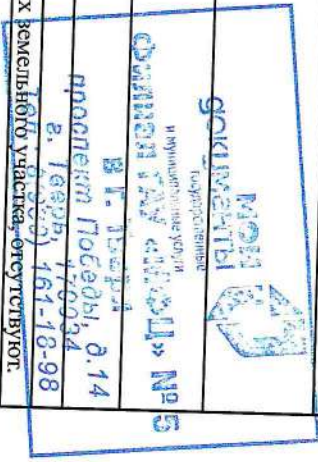 МОИ
ДОКУМЕНТЫ
государственные
и муниципальные услуги
Филиал ГАУ № 5
в г.
проспект Победы, д.14
г. Тверь, 170034
161-18-98
х земельного участка, отсутствуют.